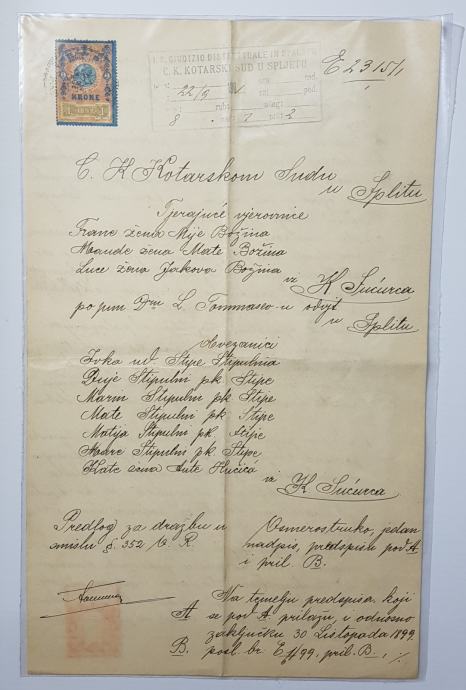 KRONE
1
I. R. GIUDIZIO DISTRETTUALE IN SPALATO
C. K. KOTARSKI SUD U SPLJETU
22/9
8 2
E 2315/1
C. K. Kotarskom Sudu
u Splitu
Tjerajuće vjerovnice
Frane žena Mije Božina
Mande žena Mate Božina
Luce žena Jakova Božina
iz K Sućurca
po pun Dru L. Tommaseo-u odvjt
u Splitu
Avezanici
Ivka ud Stipe Stipulnia
Duje Stipulin pk Stipe
Marin Stipulin pk Stipe
Mate Stipulin pk Stipe
Matija Stipulin pk. Stipe
Mare Stipulin pk Stipe
Kate žena Ante
iz K Sućurca
Predlog za dražbu u
smislu §. 352 O. R.
Osmerostruko, jedan
nadpis, predspisu pod A
i pril. B.
Na temelju predspisa, koji
A se pod A prilažu, i odnosno
zaključku 30 Listopada 1899
B. posl. br E /99, pril. B.